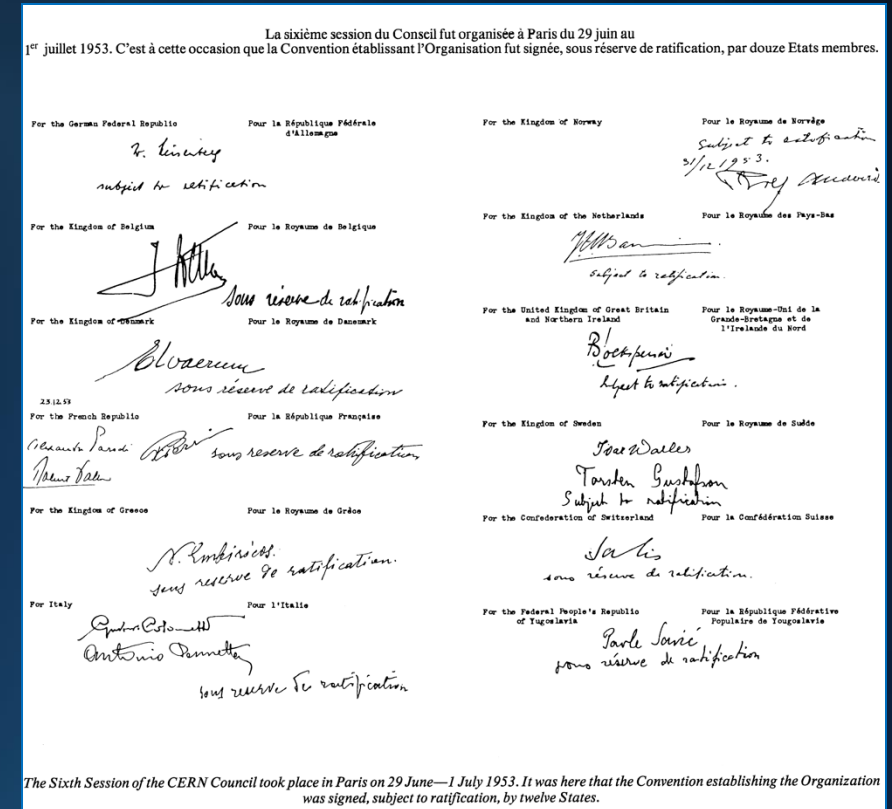 La sixième session du Conseil fut organisée à Paris du 29 juin au
1er juillet 1953. C'est à cette occasion que la Convention établissant l'Organisation fut signée, sous réserve de ratification, par douze Etats membres.
For the German Federal Republic
Pour la République Fédérale
d'Allemagne
subject to ratification
For the Kingdom of Belgium
Pour le Royaume de Belgique
sous réserve de ratification
For the Kingdom of Denmark
Pour le Royaume de Danemark
sous réserve de ratification
23.12.53
For the French Republic
Pour la République Française
Alexandre Parodi
sous reserve de ratification
For the Kingdom of Greece
Pour le Royaume de Grèce
N. Embiricos.
sous reserve de ratification.
For Italy
Pour l'Italie
Antonio Pennetta
sous reserve de ratification
For the Kingdom of Norway
Pour le Royaume de Norvège
Subject to ratification
31/12 1953.
For the Kingdom of the Netherlands
Pour le Royaume des Pays-Bas
subject to ratification.
For the United Kingdom of Great Britain
and Northern Ireland
Pour le Royaume-Uni de la
Grande-Bretagne et de
l'Irelande du Nord
subject to ratification.
For the Kingdom of Sweden
Pour le Royaume de Suède
Ivar Waller
Torsten Gustafson
Subject to ratification
For the Confederation of Switzerland
Pour la Confédération Suisse
Salis
sous réserve de ratification.
For the Federal People's Republic
of Yugoslavia
Pour la République Fédérative
Populaire de Yougoslavie
Pavle Savić
sous réserve de ratification
The Sixth Session of the CERN Council took place in Paris on 29 June—1 July 1953. It was here that the Convention establishing the Organization
was signed, subject to ratification, by twelve States.